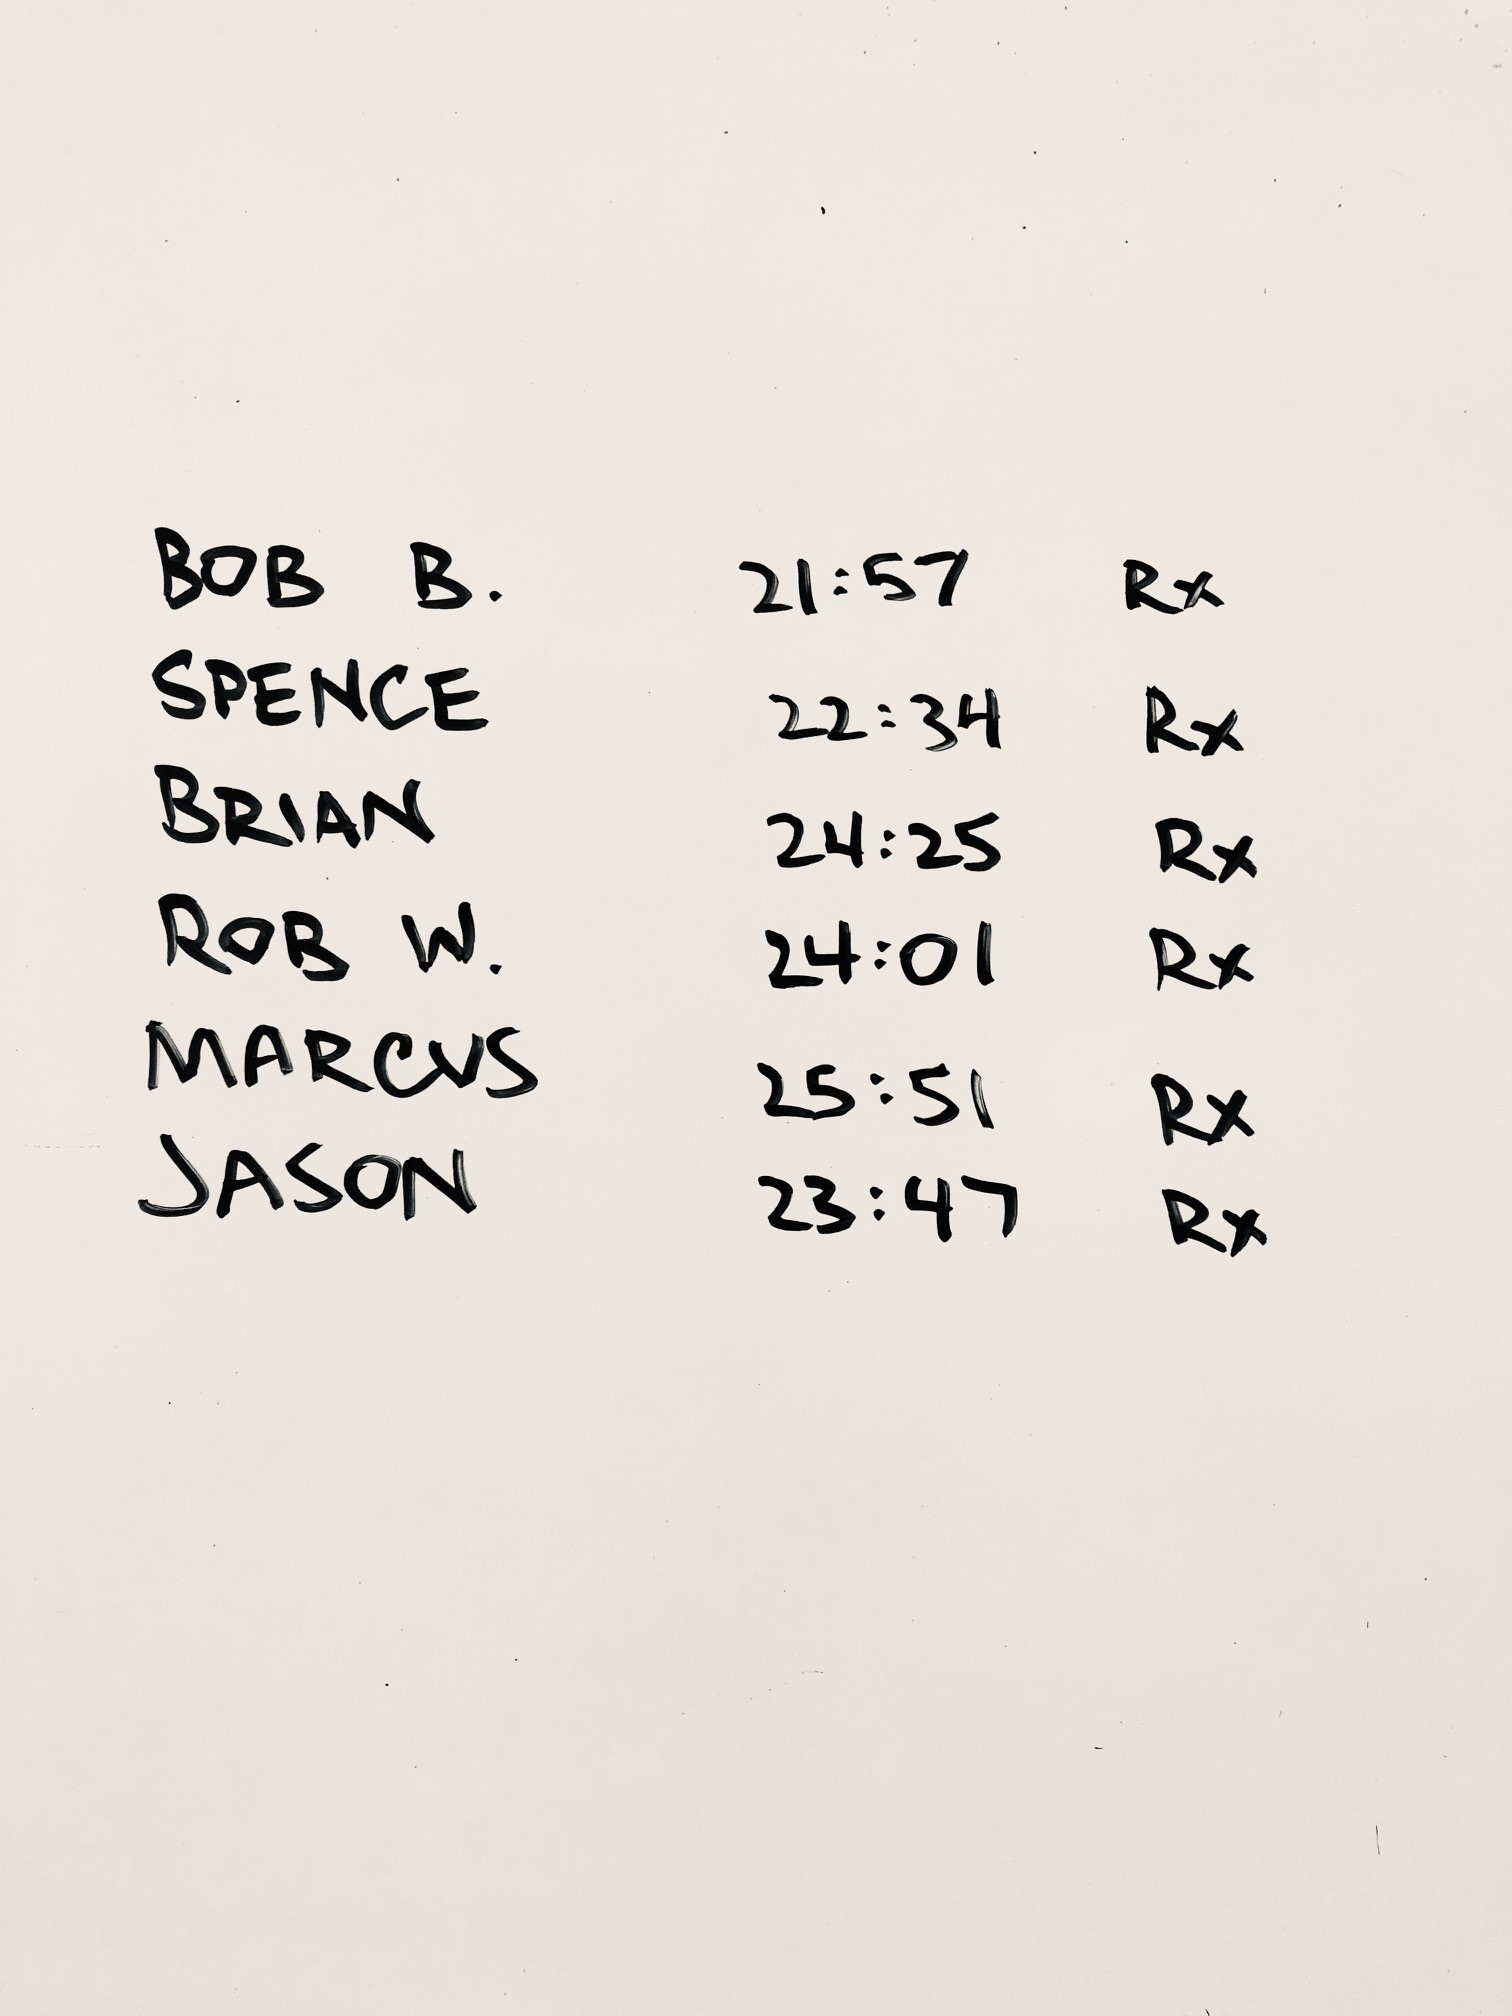 BOB B. 21:57 Rx
SPENCE 22:34 Rx
BRIAN 24:25 Rx
ROB W. 24:01 Rx
MARCUS 25:51 Rx
JASON 23:47 Rx